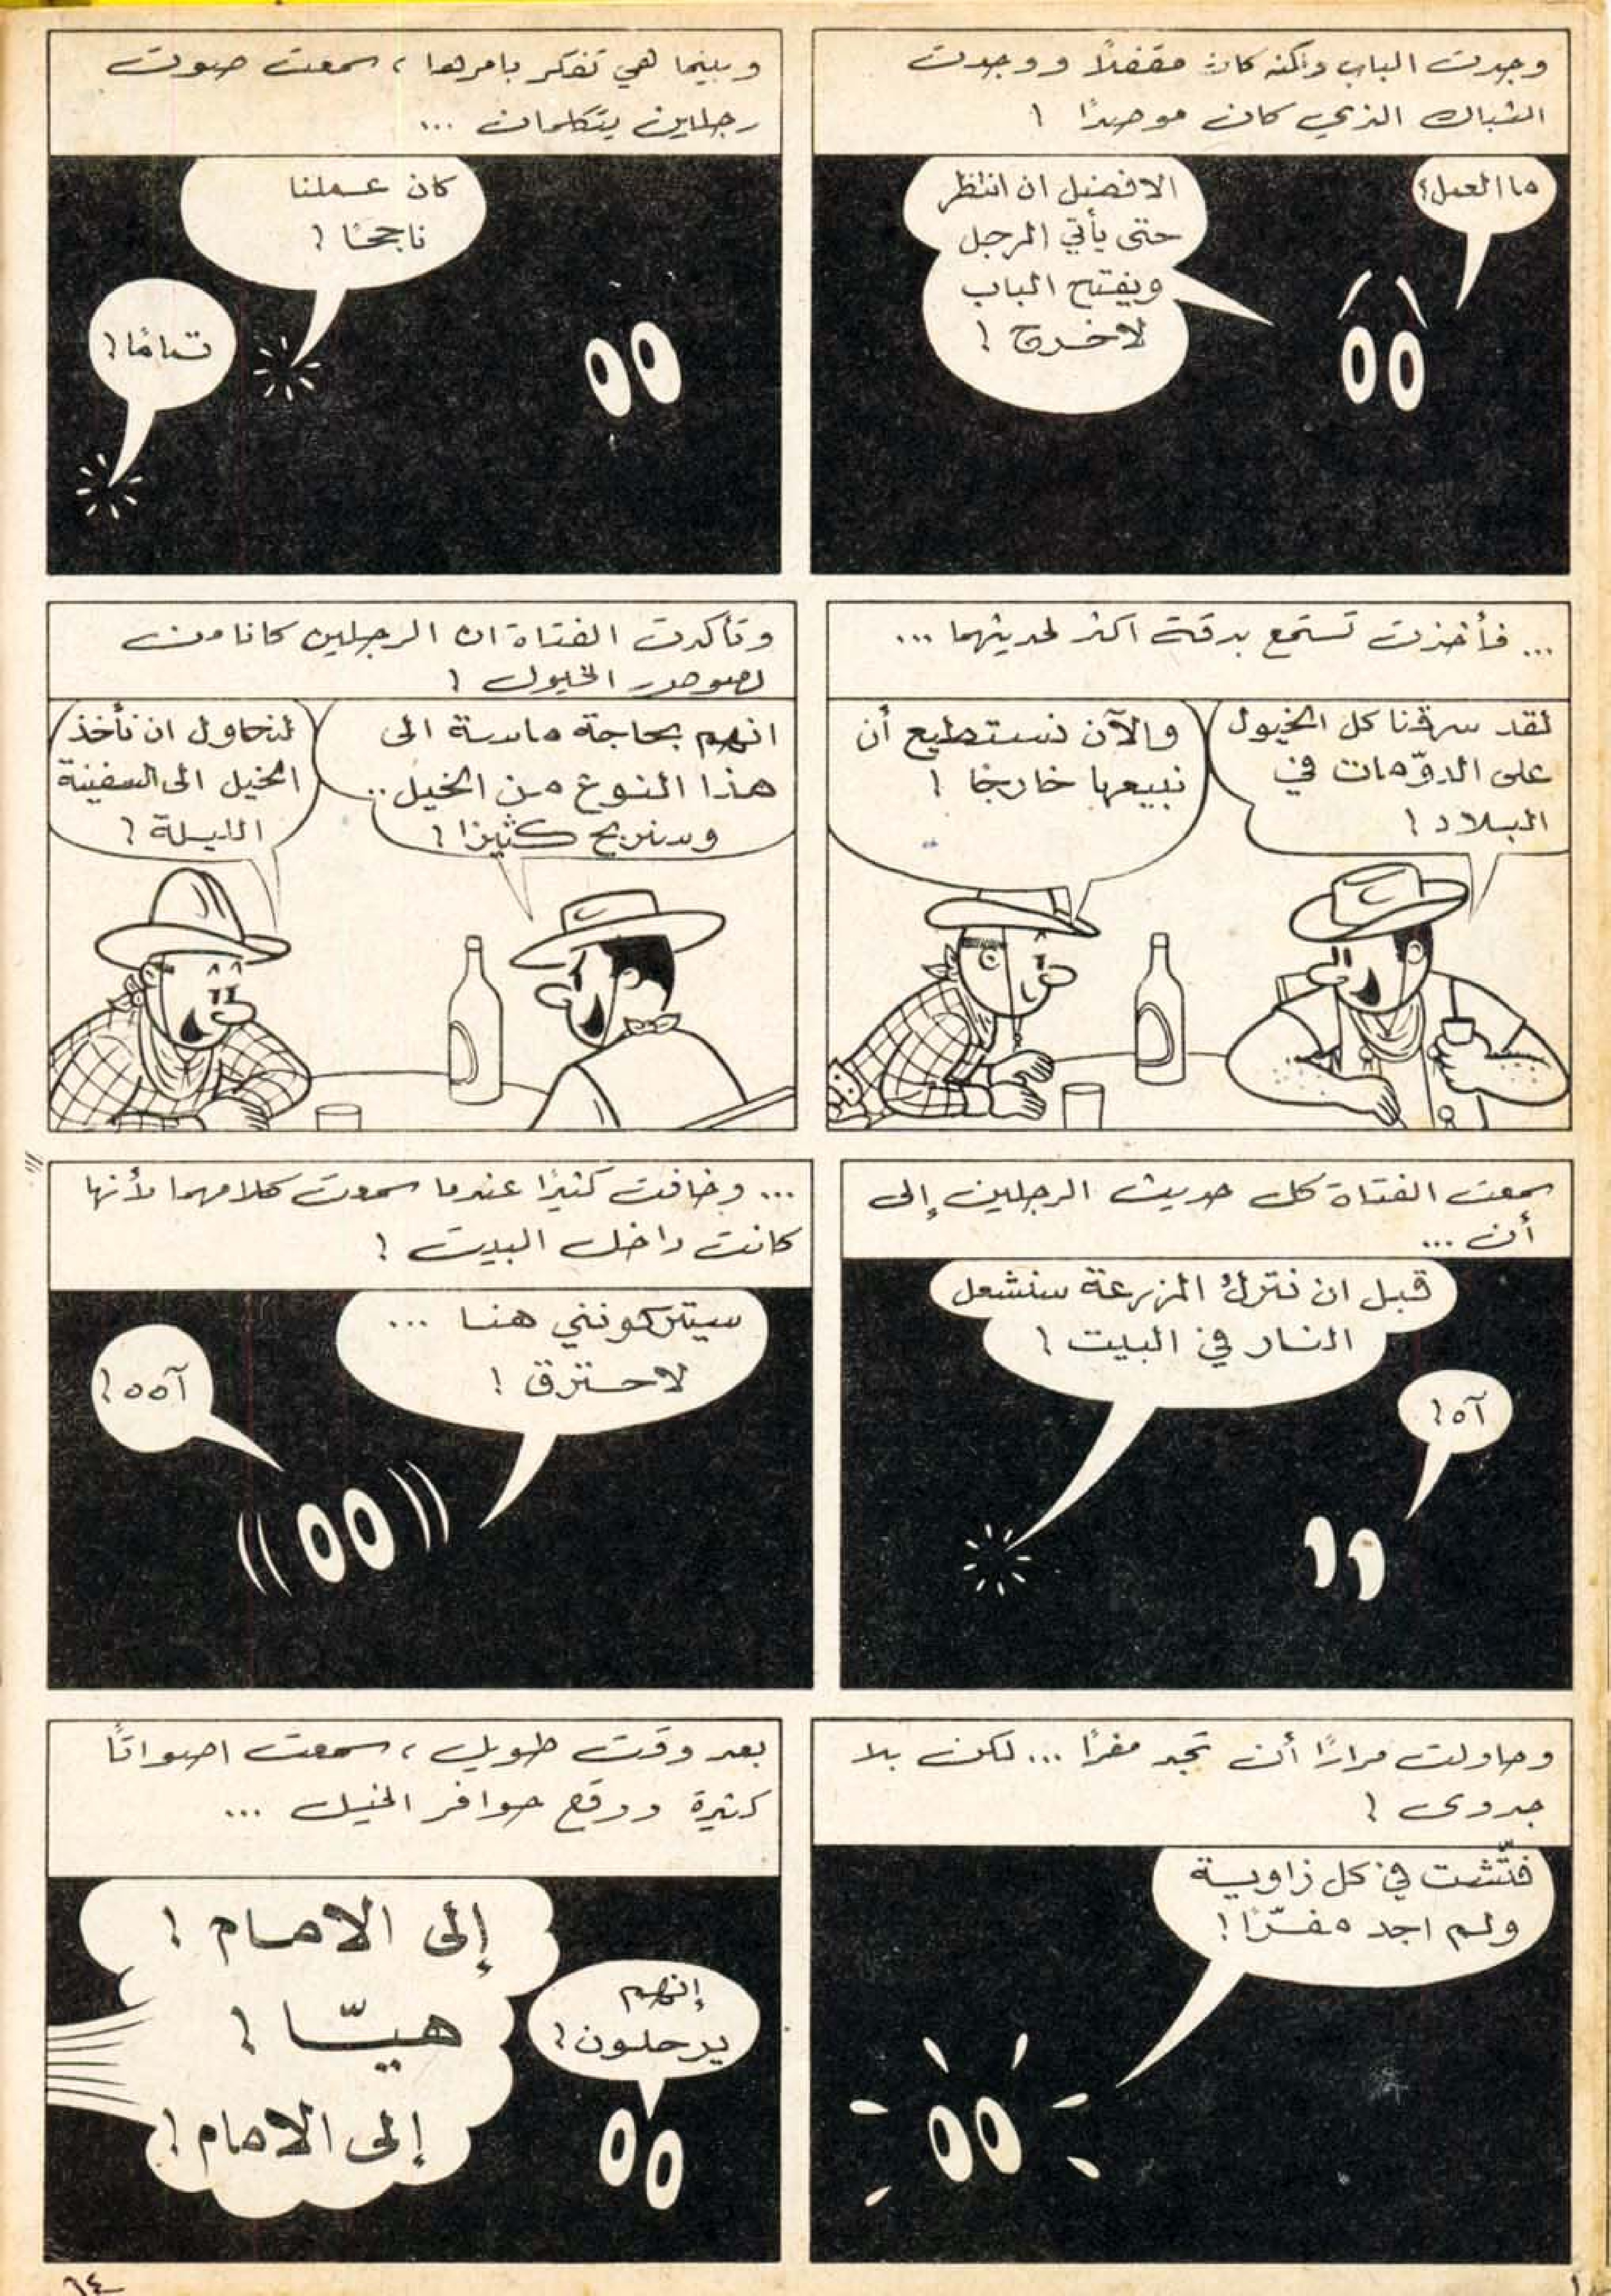 وجدت الباب ولكنه كان مقفلاً ووجدت
الشباك الذي كان موصدًا !
ما العمل؟
الافضل ان انتظر
حتى يأتي الرجل
ويفتح الباب
لاخرج !
وبينما هي تفكر بامرها ، سمعت صوت
رجلين يتكلمان ...
كان عملنا
ناجحًا !
تمامًا !
... فأخذت تستمع بدقة اكثر لحديثهما ...
لقد سرقنا كل الخيول
على الدوّمات في
البلاد !
والآن نستطيع أن
نبيعها خارجًا !
وتأكدت الفتاة ان الرجلين كانا من
لصوص الخيول !
انهم بحاجة ماسة الى
هذا النوع من الخيل ..
وسنربح كثيرًا !
لنحاول ان نأخذ
الخيل الى السفينة
الليلة !
سمعت الفتاة كل حديث الرجلين إلى
أن ...
قبل ان نترك المزرعة سنشعل
النار في البيت !
آه !
... وخافت كثيرًا عندما سمعت كلامهما لأنها
كانت داخل البيت !
سيتركونني هنا ...
لاحترق !
آه ه !
وحاولت مرارًا أن تجد مفرًا ... لكن بلا
جدوى !
فتّشت في كل زاوية
ولم اجد مفرّا !
بعد وقت طويل ، سمعت اصواتًا
كثيرة ووقع حوافر الخيل ...
إنهم
يرحلون !
إلى الامام !
هيّا !
إلى الامام !
٦٤